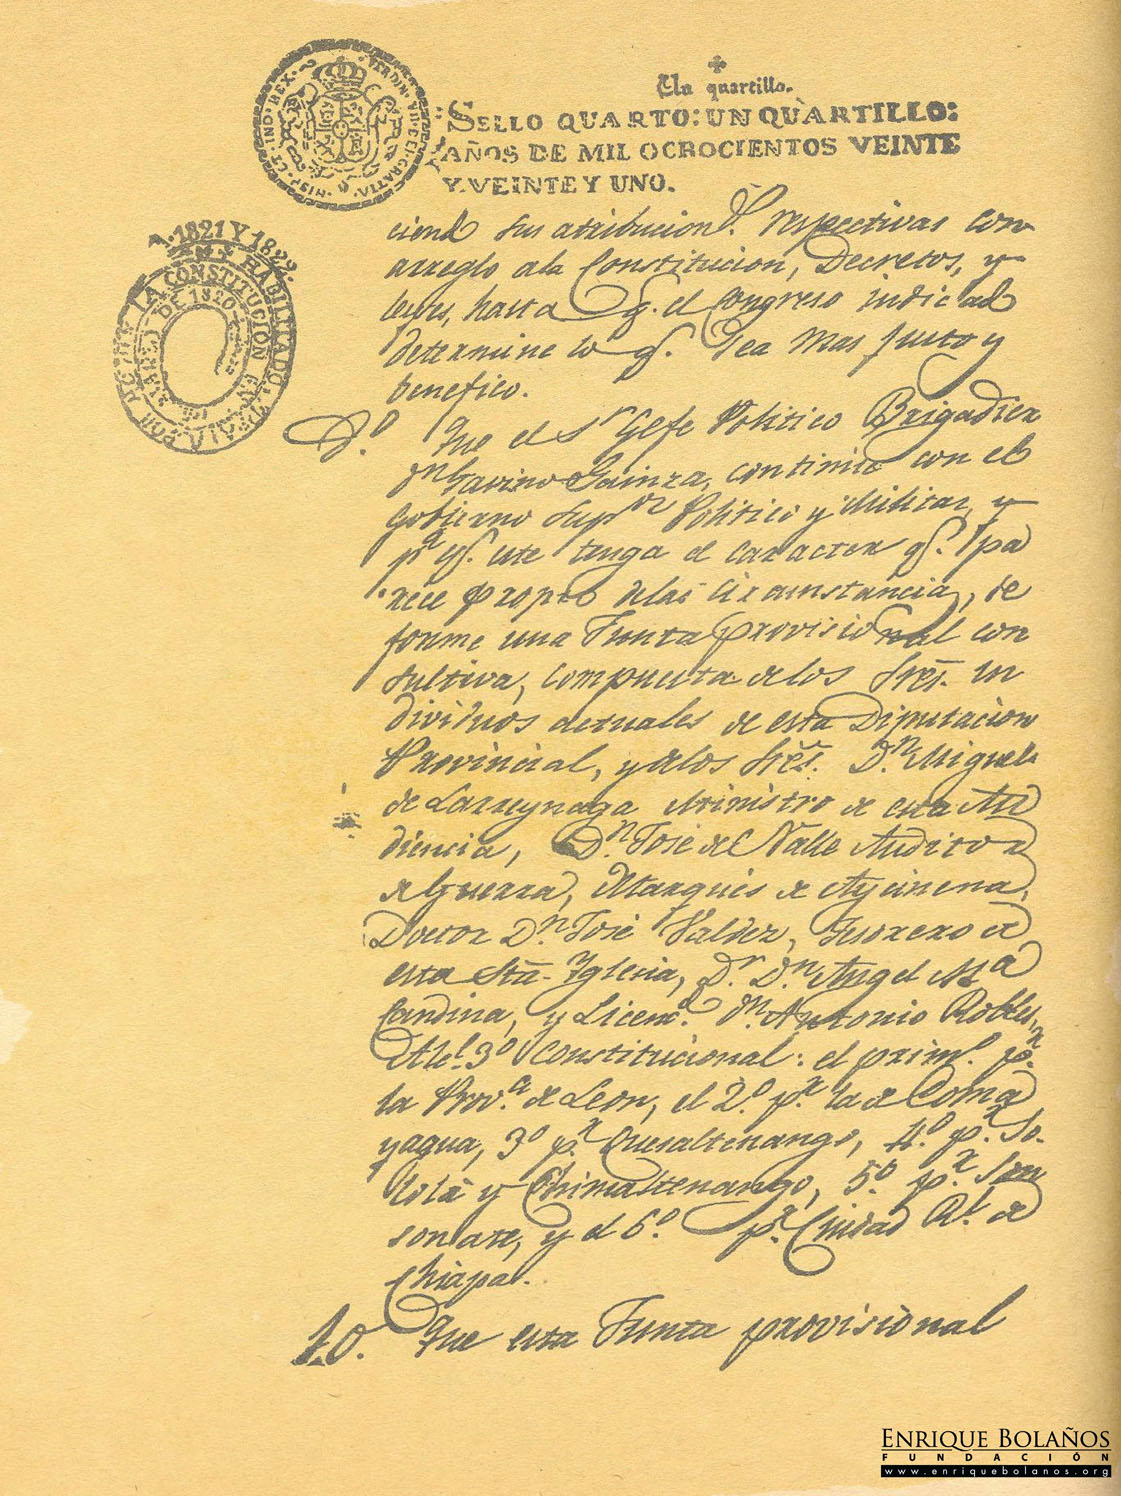 HISP. ET IND. REX.
FERDIN. VII. DEI. GRATIA.
Un quartillo.
SELLO QUARTO: UN QUARTILLO:
AÑOS DE MIL OCROCIENTOS VEINTE
Y VEINTE Y UNO.
A. 1821 Y 1822.
HABILITADO,
LA CONSTITUCION EN
DE 1820
ciend sus atribucion.s respectivas con
arreglo ala Constitucion, Decretos, y
leyes, hasta q.e el Congreso indicad
determine lo q.e sea mas justo y
benefico.
9.o Que el S.r Gefe Politico Brigadier
D.n Gavino Gainza, continúe con el
Gobierno Sup.or Politico y Militar, y
p.a q.e este tenga el caracter q.e pa
rece propio delas circunstancias, se
forme una Junta provisional con
sultiva, compuesta delos Sres. in
dividuos actuales de esta Diputacion
Provincial, y delos Sres. D.n Miguel
de Larreynaga Ministro de esta Au
diencia, D.n José del Valle Auditor
de Guerra, Marques de Aycinena,
Doctor D.n José Valdez, Tesorero de
esta Sta. Yglesia, D.r D.n Angel M.a
Candina, y Licen.do D.n Antonio Robles,
Alc.l 3.o Constitucional: el prim.o p.r
la Prov.a de Leon, el 2.o p.r la de Coma
yagua, 3.o p.r Quesaltenango, 4.o p.r So-
lolá y Chimaltenango, 5.o p.r Son
sonate, y el 6.o p.r Ciudad R.l de
Chiapa.
10. Que esta Junta provisional
ENRIQUE BOLAÑOS
FUNDACIÓN
www.enriquebolanos.org